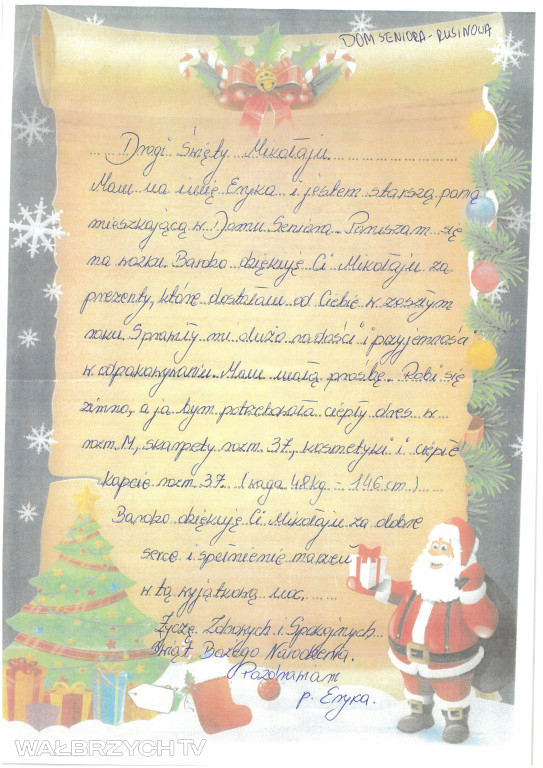 DOM SENIORA - RUSINOWA
Drogi Święty Mikołaju
Mam na imię Eryka i jestem starszą panią
mieszkającą w Domu Seniora. Poruszam się
na wózku. Bardzo dziękuję Ci Mikołaju za
prezenty, które dostałam od Ciebie w zeszłym
roku. Sprawiły mi dużo radości i przyjemności
w odpakowywaniu. Mam małą prośbę. Robi się
zimno, a ja bym potrzebowała ciepły dres w
rozm. M, skarpety rozm. 37, kosmetyki i ciepłe
kapcie rozm. 37. (waga 48kg - 146 cm)
Bardzo dziękuję Ci Mikołaju za dobre
serce i spełnienie marzeń
w tą wyjątkową noc,
Życzę Zdrowych i Spokojnych
Świąt Bożego Narodzenia.
Pozdrawiam
p. Eryka.
WAŁBRZYCH TV